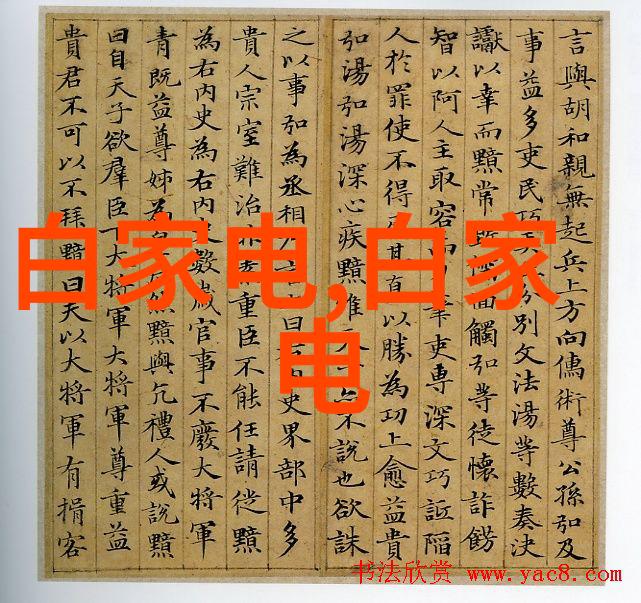 言與胡和親無起兵上方向儒術尊公孫弘及
事益多吏民巧分別文法湯等數奏決
讞以幸而黯常毀面觸弘等徒懷詐餝
智以阿人主取容而筆吏專深文巧詆陷
人於罪使不得其以勝為功上愈益貴
弘湯弘湯深心疾黯唯不說也欲誅
之以事弘為丞相乃曰史界部中多
貴人宗室難治非素重臣不能任請徙黯
為右内史為右内史數歲官事不廢大將軍
青既益尊姊為然黯與亢禮人或說黯
曰自天子欲羣臣下大將軍大將軍尊重益
貴君不可以不拜黯曰夫以大將軍有揖客
白家电,白家
电
书法欣赏 www.yac8.com